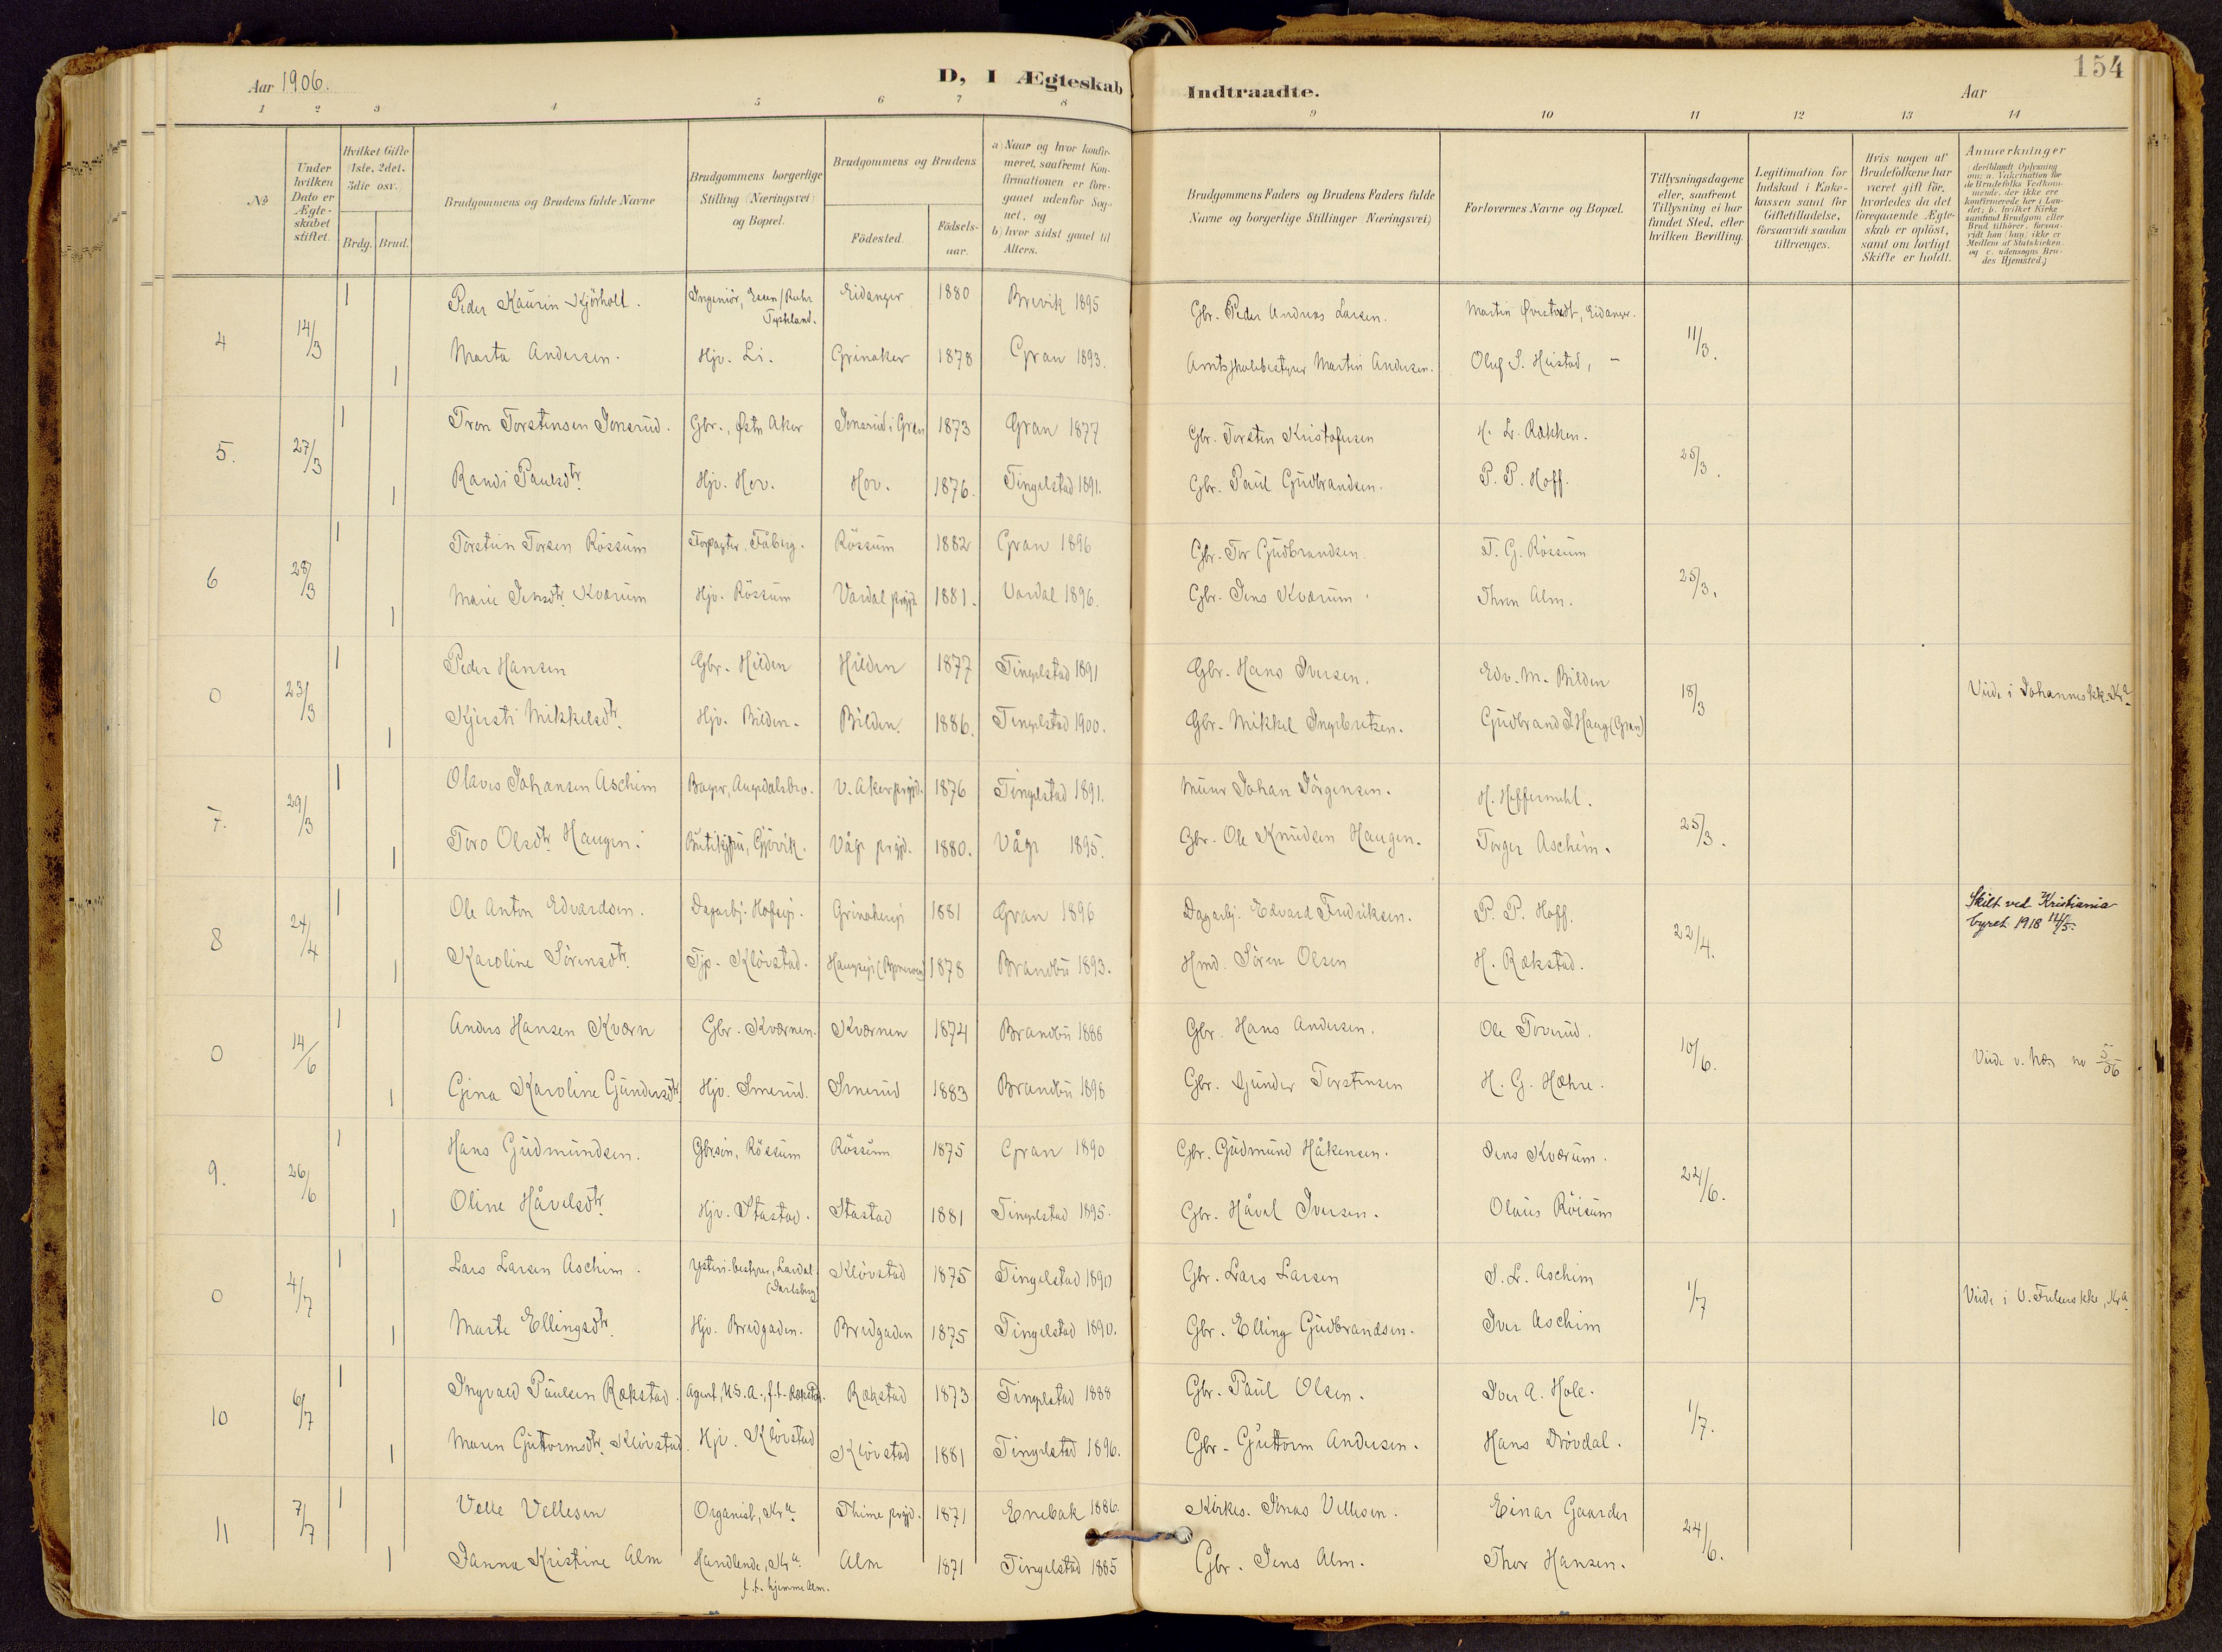 Aar 1906.
D, I Ægteskab Indtraadte.
Aar
154
1 2 3 4 5 6 7 8 9 10 11 12 13 14
No
Under hvilken Dato er Ægteskabet stiftet.
Hvilket Gifte (1ste, 2det, 3die osv.)
Brdg. Brud.
Brudgommens og Brudens fulde Navne
Brudgommens borgerlige Stilling (Næringsvei) og Bopæl.
Brudgommens og Brudens
Fødested.
Fødselsaar.
a) Naar og hvor konfirmeret, saafremt Konfirmationen er foregaaet udenfor Sognet, og
b) hvor sidst gaaet til Alters.
Brudgommens Faders og Brudens Faders fulde Navne og borgerlige Stillinger Næringsvei)
Forlovernes Navne og Bopæl.
Tillysningsdagene eller, saafremt Tillysning ei har fundet Sted, efter hvilken Bevilling.
Legitimation for Indskud i Enkekassen samt for Giftetilladelse, forsaavidt saadan tiltrænges.
Hvis nogen af Brudefolkene har været gift før, hvorledes da det foregaaende Ægteskab er opløst, samt om lovligt Skifte er holdt.
Anmærkninger
deriblandt Oplysning om: a. Vakcination for de Brudefolks Vedkommende, der ikke ere konfirmerede her i Landet; b. hvilket Kirkesamfund Brudgom eller Brud tilhører, forsaavidt han (hun) ikke er Medlem af Statskirken og c. udensogns Brudes Hjemsted.)
4 14/3 1 Peder Kaurin Skjörholt. Ingeniör, Essen/Ruhr Tyskland. Eidanger 1880 Brevik 1895 Gbr. Peder Andreas Larsen. Martin Eidanger. 11/3.
1 Marta Andersen. Hjv. Li. Grinaker 1878 Gran 1893. Amtsskolebestyrer Martin Andersen. Oluf S. Heistad, -
5. 27/3 1 Tron Torstensen Jonsrud. Gbr., Østn Aker Jonsrud i Gran 1873 Gran 1877 Gbr. Torsten Kristofersen H. L. Rækken. 25/3.
1 Randi Paulsdtr. Hjv. Hov. Hov. 1876. Tingelstad 1891. Gbr. Paul Gudbrandsen. P. P. Hoff.
6 28/3 1 Torstein Torsen Rössum Forpagter, Fåberg. Rössum 1882 Gran 1896 Gbr. Tor Gudbrandsen. T. G. Rössum 25/3.
1 Marie Jensdtr. Kværum Hjv. Rössum Vardal prgjd. 1881. Vardal 1896. Gbr. Jens Kværum. Thron Alm.
0 23/3 1 Peder Hansen Gbr. Hilden Hilden 1877 Tingelstad 1891 Gbr. Hans Iversen. Edv. M. Bilden 18/3 Viede i Johanneskk. Kra.
1 Kjersti Mikkelsdtr. Hjv. Bilden. Bilden. 1886. Tingelstad 1900. Gbr. Mikkel Ingebretsen. Gudbrand J. Haug (Gran)
7. 29/3 1 Olaves Johansen Aschim Bager, Augedalsbro. V. Aker prgjd. 1876 Tingelstad 1891. Murer Johan Jörgensen. H. Hoffermehl. 25/3.
1 Toro Olsdtr. Haugen. Butikjfru, Gjövik. Våge prgjd. 1880. Våge 1895. Gbr. Ole Knudsen Haugen. Torger Aschim.
8 24/4 1 Ole Anton Edvardsen. Dagarbj. Hofseje. Grinakereje 1881 Gran 1896 Dagarbj. Edvard Fredriksen. P. P. Hoff. 22/4. Skilt ved Kristiania byret 1918 14/5.
1 Karoline Sörensdtr. Tjp. Klövstad. 1878 Brandbu 1893. Hmd. Sören Olsen H. Rækstad.
0 14/6 1 Anders Hansen Kværn Gbr. Kværnen. Kværnen 1874 Brandbu 1888 Gbr. Hans Andersen. Ole Toverud. 10/6. Viede v. Næs no 5/06
1 Gina Karoline Gundersdtr. Hjv. Smerud. Smerud 1883 Brandbu 1898 Gbr. Gunder Torstensen H. G. Hæhre.
9. 26/6 1 Hans Gudmundsen. Gbrsön, Rössum Rössum 1875 Gran 1890 Gbr. Gudmund Håkensen. Jens Kværum. 24/6.
1 Oline Håvelsdtr. Hjv. Stastad. Stastad 1881 Tingelstad 1895. Gbr. Håvel Iversen. Olaus Röisum
0 4/7 1 Lars Larsen Aschim. Ysteri-bestyrer, Lardal (Jarlsberg) Klövstad 1875 Tingelstad 1890 Gbr. Lars Larsen S. L. Aschim 1/7 Viede i V. Frelsers kke, Kra
1 Marte Ellingsdtr. Hjv. Bredgaden. Bredgaden 1875 Tingelstad 1890. Gbr. Elling Gudbrandsen. Iver Aschim
10 6/7 1 Ingvald Paulsen Rækstad. Agent, U.S.A., f.t. Rækstad. Rækstad 1873 Tingelstad 1888 Gbr. Paul Olsen. Iver A. Hole. 1/7.
1 Maren Guttormsdtr. Klövstad. Hjv. Klövstad Klövstad 1881 Tingelstad 1896. Gbr. Guttorm Andersen. Hans Drövdal.
11 7/7 1 Velle Vellesen Organist, Kra. Thime prgjd. 1871 Enebak 1886. Kirkes. Jonas Vellesen. Einar Gaarder 24/6.
1 Janna Kristine Alm Handlende, Kra. f.t. hjemme Alm. Alm 1871 Tingelstad 1885 Gbr. Jens Alm. Thor Hansen.